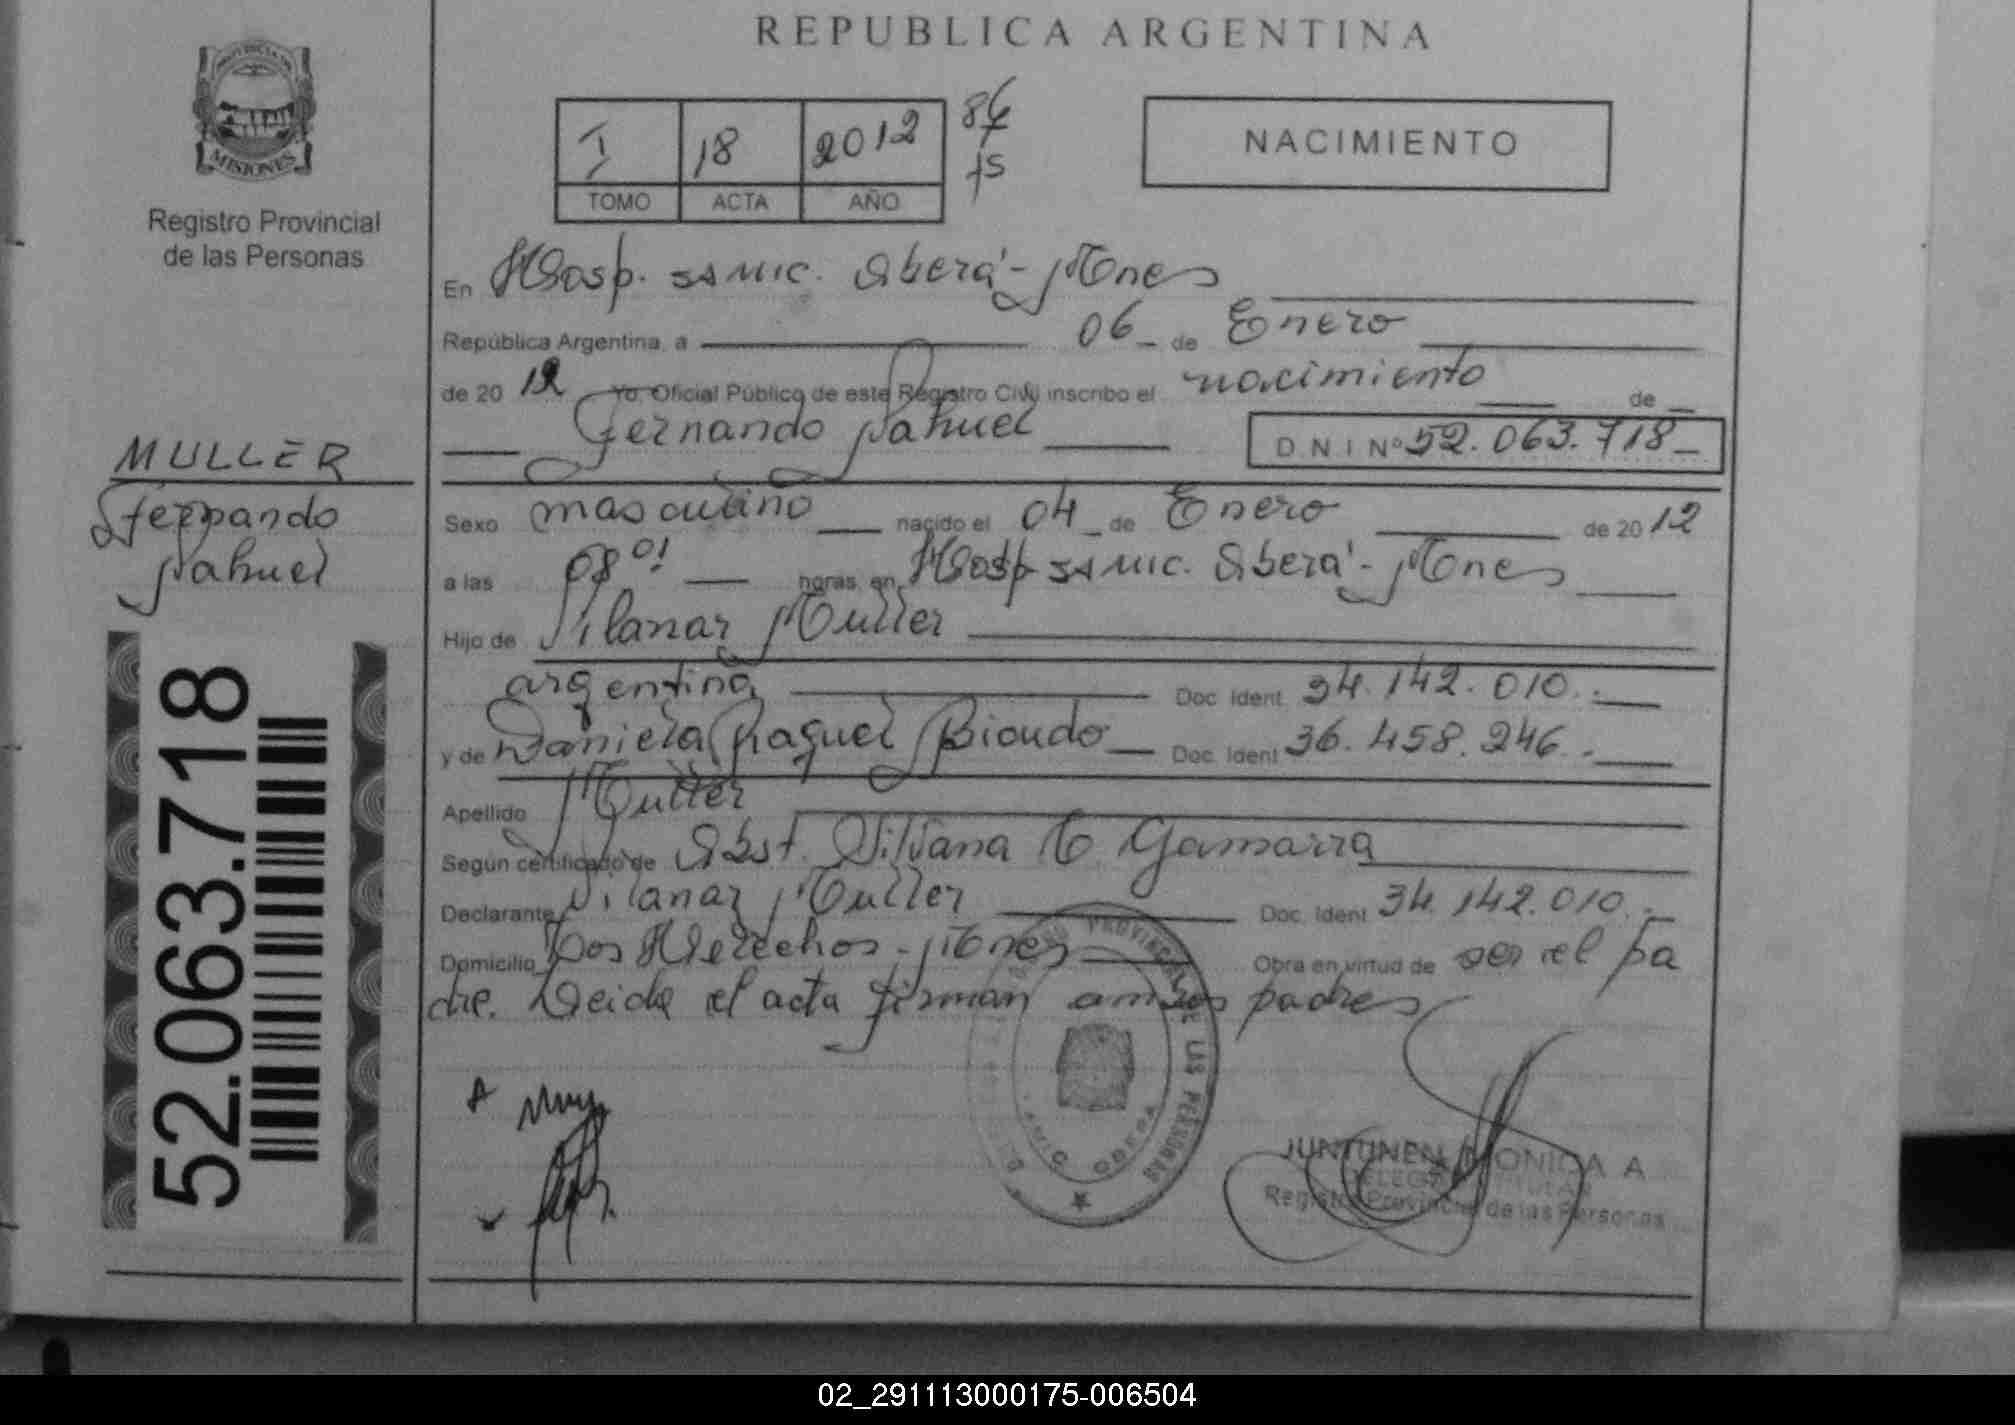 REPUBLICA ARGENTINA
PROVINCIA DE
MISIONES
Registro Provincial
de las Personas
I 18 2012
TOMO ACTA AÑO
NACIMIENTO
En Hosp. samic. Oberá - Mnes
República Argentina, a 06 de Enero
de 2012 Yo, Oficial Público de este Registro Civil inscribo el nacimiento de
Fernando Nahuel
D N I Nº 52.063.718
MULLER
Fernando
Nahuel
52.063.718
Sexo masculino nacido el 04 de Enero de 2012
a las 08 01 horas, en Hosp samic. Oberá - Mnes
Hijo de Silamar Muller
argentina Doc. Ident. 34.142.010.
y de Daniela Raquel Biondo Doc. Ident 36.458.246.
Apellido Muller
Según certificado de Obst. Silvana Gamarra
Declarante Silamar Muller Doc. Ident 34.142.010.
Domicilio Dos Hermanas - Mnes Obra en virtud de ser el pa
dre. Leida el acta firman ambos padres
PROVINCIAL DE LAS PERSONAS
OBERA
JUNTUNEN MONICA A
Registro Provincial de las Personas
02_291113000175-006504